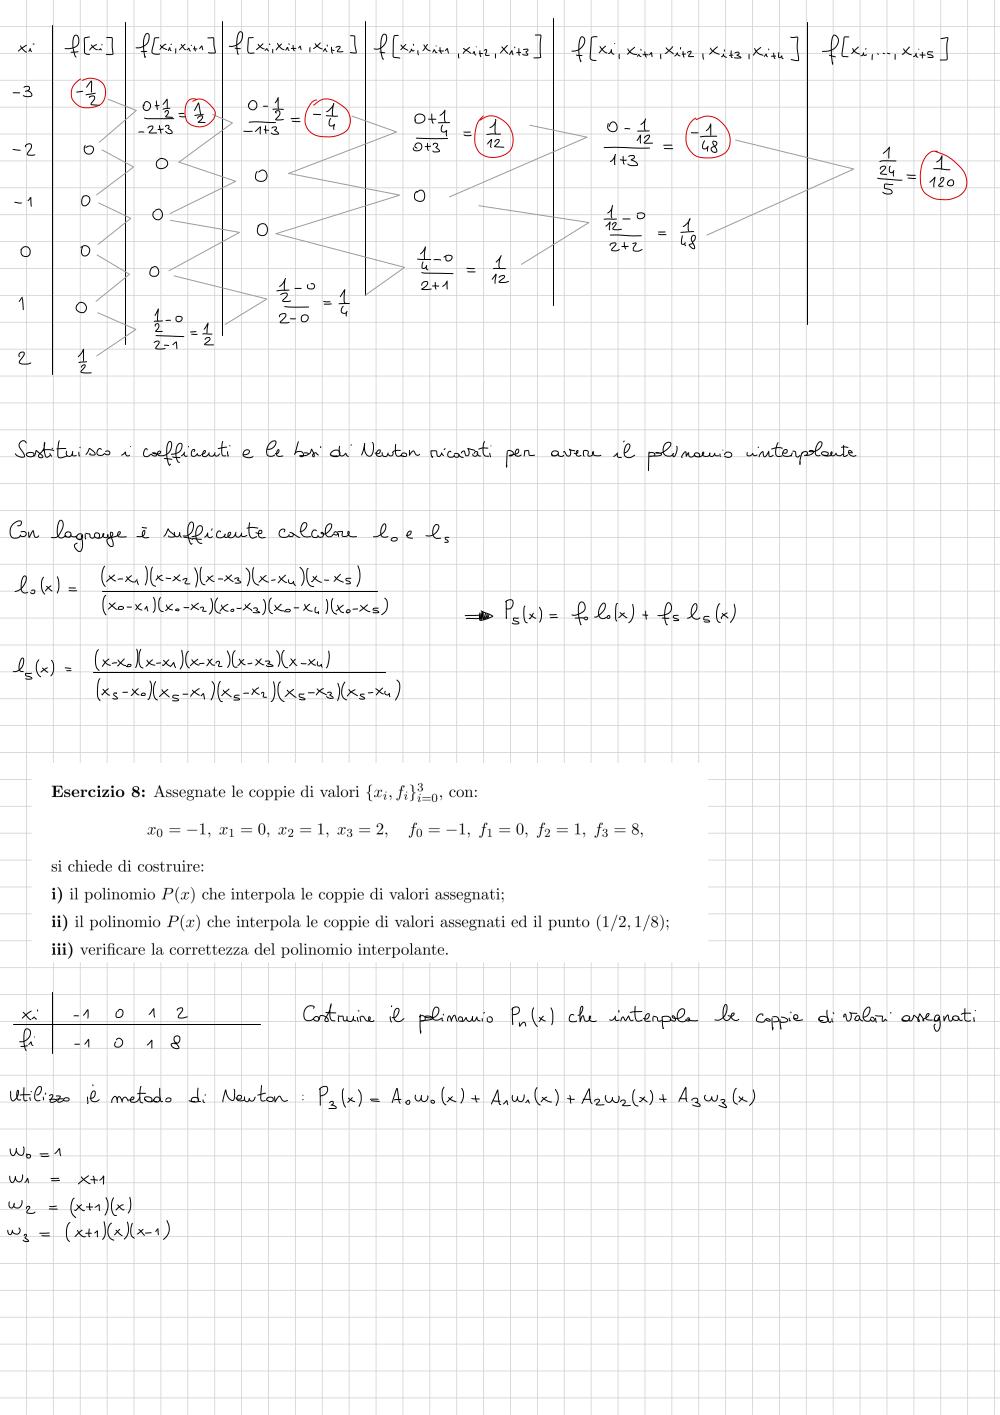 xi | f[xi] | f[xi,xi+1] | f[xi,xi+1,xi+2] | f[xi,xi+1,xi+2,xi+3] | f[xi,xi+1,xi+2,xi+3,xi+4] | f[xi,...,xi+5]
-3 | -1/2
(0+1/2)/(-2+3) = 1/2 | (0-1/2)/(-1+3) = -1/4 | (0+1/4)/(0+3) = 1/12 | (0-1/12)/(1+3) = -1/48
-2 | 0
0 | 0 | 0 | (1/24)/5 = 1/120
-1 | 0
0 | 0 | (1/12-0)/(2+2) = 1/48
0 | 0
0 | (1/4-0)/(2+1) = 1/12
1 | 0
(1/2-0)/(2-1) = 1/2 | (1/2-0)/(2-0) = 1/4
2 | 1/2
Sostituisco i coefficienti e le basi di Newton ricavati per avere il polinomio interpolante
Con lagrange è sufficiente calcolare l0 e l5
l0(x) = (x-x1)(x-x2)(x-x3)(x-x4)(x-x5) / (x0-x1)(x0-x2)(x0-x3)(x0-x4)(x0-x5)
⇒ P5(x) = f0 l0(x) + f5 l5(x)
l5(x) = (x-x0)(x-x1)(x-x2)(x-x3)(x-x4) / (x5-x0)(x5-x1)(x5-x2)(x5-x3)(x5-x4)
Esercizio 8: Assegnate le coppie di valori {xi, fi}³i=0, con:
x0 = −1, x1 = 0, x2 = 1, x3 = 2, f0 = −1, f1 = 0, f2 = 1, f3 = 8,
si chiede di costruire:
i) il polinomio P(x) che interpola le coppie di valori assegnati;
ii) il polinomio P(x) che interpola le coppie di valori assegnati ed il punto (1/2, 1/8);
iii) verificare la correttezza del polinomio interpolante.
xi | -1 0 1 2
fi | -1 0 1 8
Costruire il polinomio Pn(x) che interpola le coppie di valori assegnati
Utilizzo il metodo di Newton : P3(x) = A0w0(x) + A1w1(x) + A2w2(x) + A3w3(x)
w0 = 1
w1 = x+1
w2 = (x+1)(x)
w3 = (x+1)(x)(x-1)